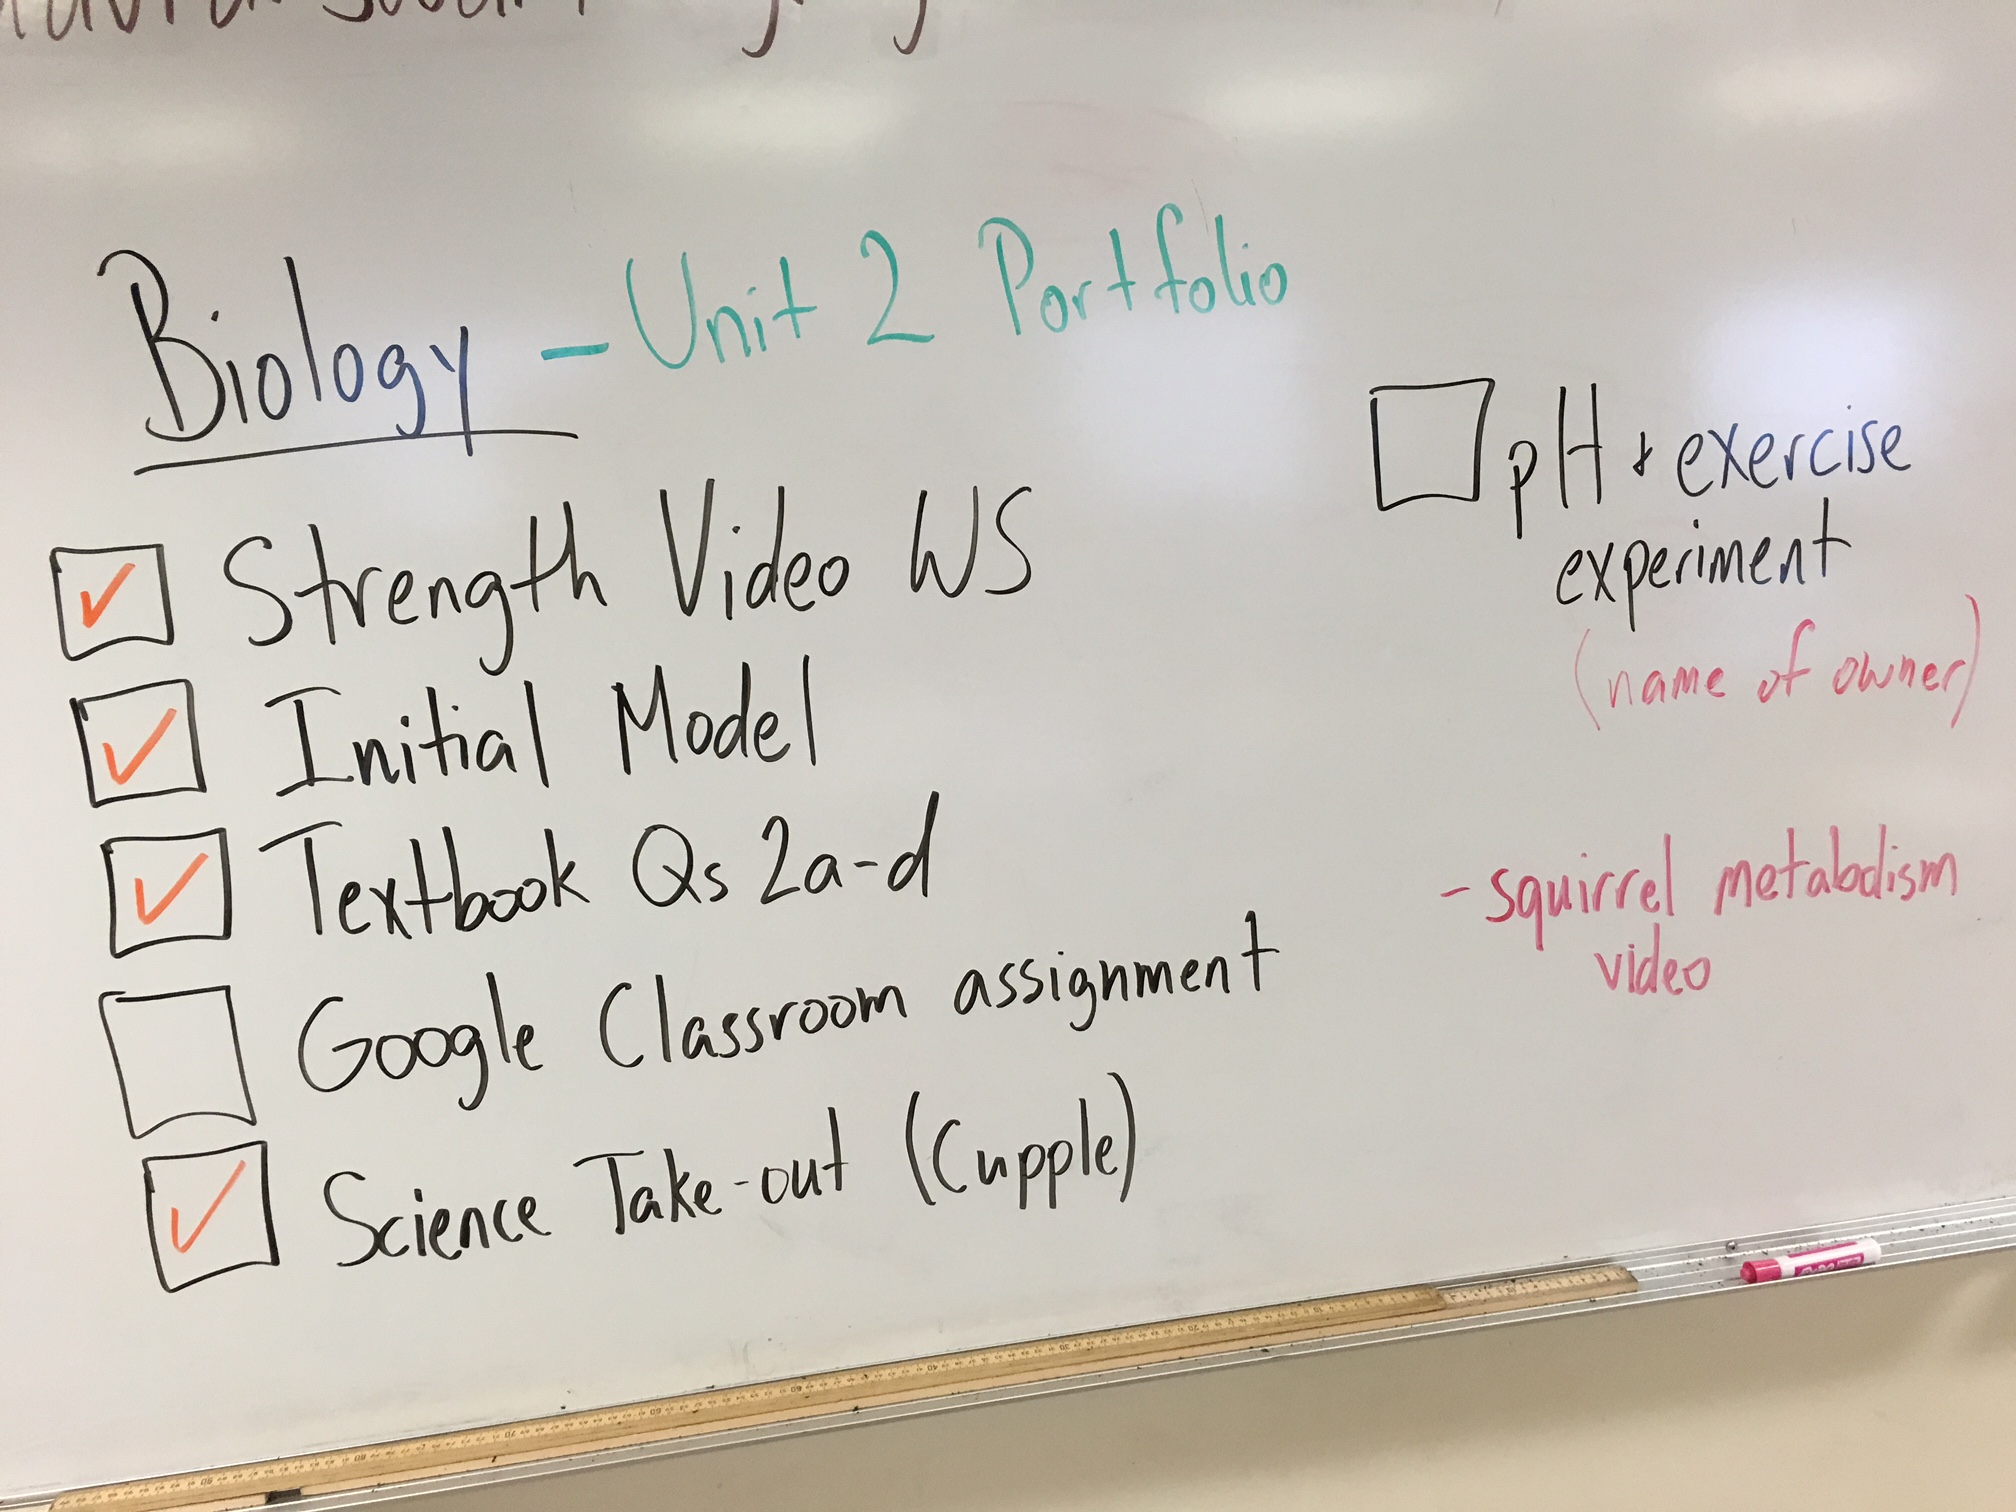 Biology - Unit 2 Portfolio
Strength Video WS
Initial Model
Textbook Qs 2a-d
Google Classroom assignment
Science Take-out (Cupple)
pH + exercise
experiment
(name of owner)
- squirrel metabolism
video